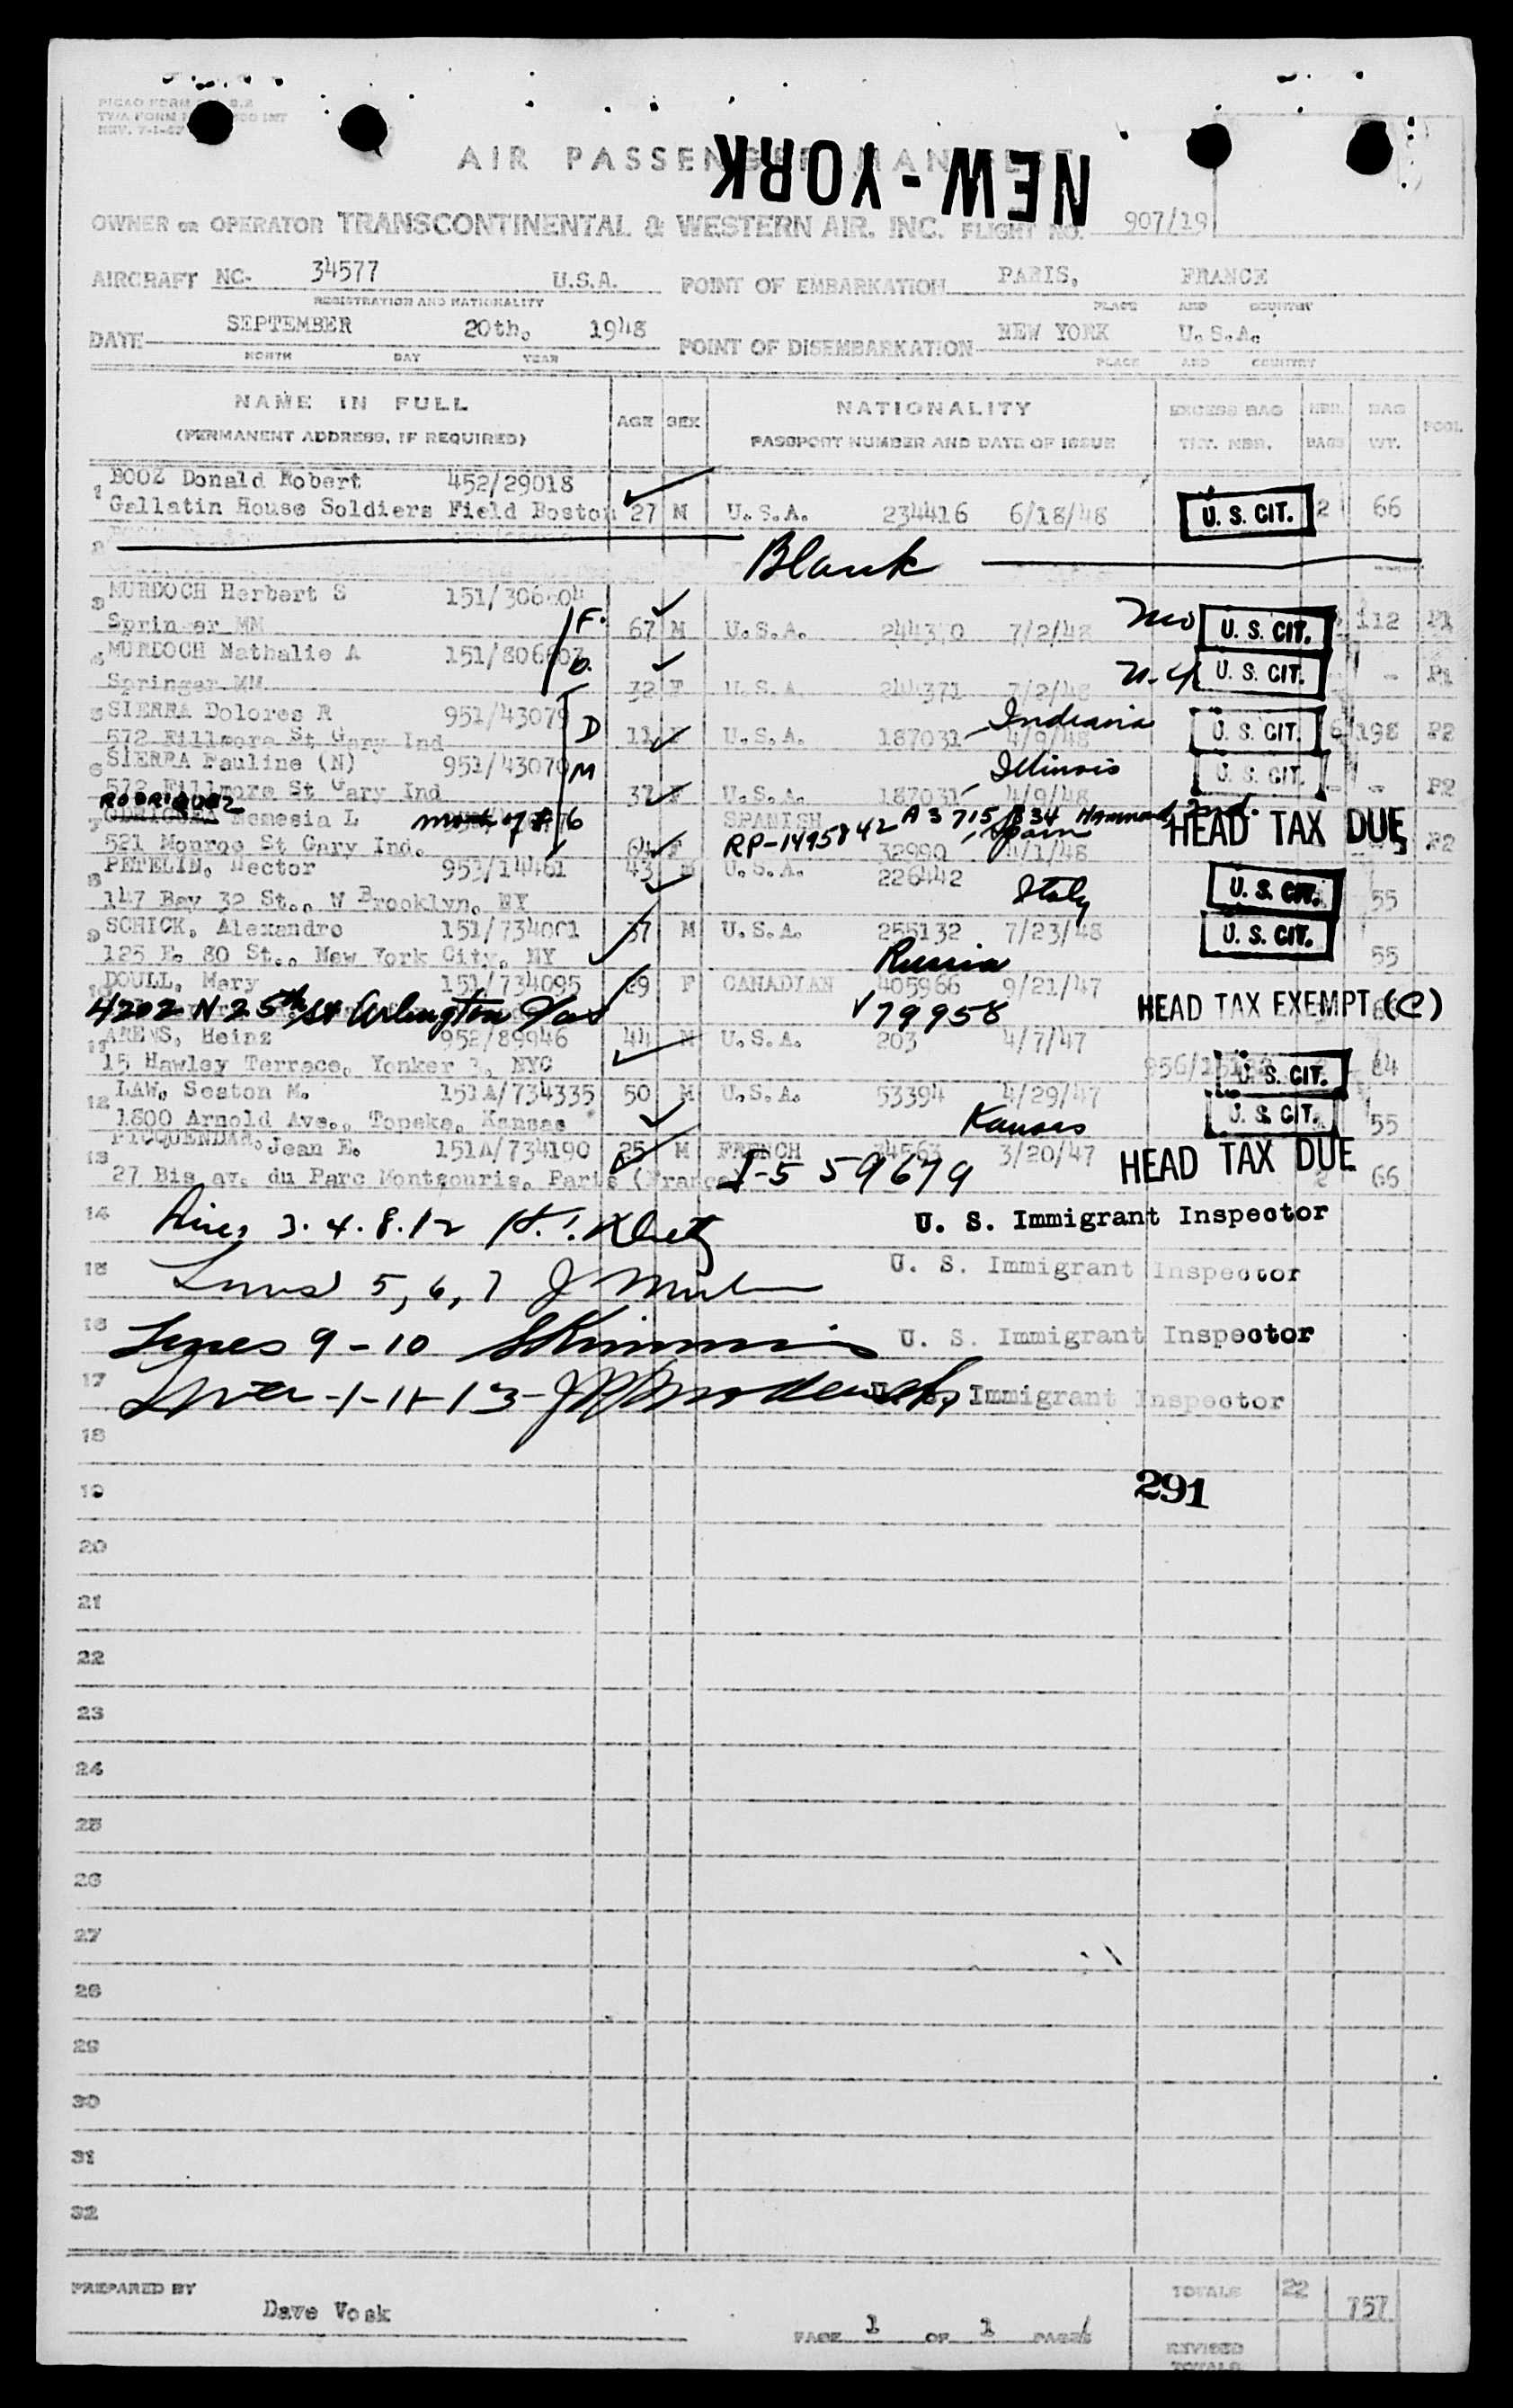 PICAO FORM
TWA FORM
REV. 7-1-47
AIR PASSENGER MANIFEST
NEW-YORK
OWNER OR OPERATOR TRANSCONTINENTAL & WESTERN AIR. INC. FLIGHT NO. 907/19
AIRCRAFT NC- 34577 U.S.A. POINT OF EMBARKATION PARIS, FRANCE
REGISTRATION AND NATIONALITY PLACE AND COUNTRY
DATE SEPTEMBER 20th, 1948 POINT OF DISEMBARKATION NEW YORK U.S.A.
MONTH DAY YEAR PLACE AND COUNTRY
NAME IN FULL AGE SEX NATIONALITY EXCESS BAG NBR. BAG POOL
(PERMANENT ADDRESS, IF REQUIRED) PASSPORT NUMBER AND DATE OF ISSUE TKT. NBR. BAGS WT.
1 BOOZ Donald Robert 452/29018
Gallatin House Soldiers Field Boston 27 M U.S.A. 234416 6/18/48 U. S. CIT. 2 66
2 Blank
3 MURDOCH Herbert S
Springer MM F. 67 M U.S.A. 7/2/48 Mo U. S. CIT. 112 P1
4 MURDOCH Nathalie A D.
Springer MM 32 F U.S.A. 244371 7/2/48 N.Y. U. S. CIT. - P1
5 SIERRA Dolores R 951/43079 D Indiana
572 Fillmore St Gary Ind 11 F U.S.A. 187031 4/9/48 U. S. CIT. 6 198 P2
6 SIERRA Pauline (N) 951/43079 M Illinois
572 Fillmore St Gary Ind 37 F U.S.A. 187031 4/9/48 U. S. CIT. - - P2
RODRIGUEZ
7 Nemesia L moth of # 6 SPANISH RP-1495842 A3 715 834 Hammond, Ind. HEAD TAX DUE
521 Monroe St Gary Ind. 64 F 32990 Spain 4/1/48 P2
8 PETELIN, Nector 953/14461 43 M U.S.A. 226442
147 Bay 32 St., W Brooklyn, NY Italy U. S. CIT. 55
9 SCHICK, Alexandro 151/734001 37 M U.S.A. 255132 7/23/48 U. S. CIT.
125 E. 80 St., New York City, NY Russia 55
10 DOULL, Mary 151/734095 29 F CANADIAN 405966 9/21/47
4202 N 25th St Arlington Va V79958 HEAD TAX EXEMPT (C)
11 ARENS, Heinz 952/89946 44 M U.S.A. 203 4/7/47
15 Hawley Terrace, Yonker 3, NYC U. S. CIT. 84
12 LAW, Seaton M. 151A/734335 50 M U.S.A. 53394 4/29/47
1800 Arnold Ave., Topeka, Kansas Kansas U. S. CIT. 55
13 Jean E. 151A/734190 25 M FRENCH 34563 3/20/47 HEAD TAX DUE
27 Bis av. du Parc Montsouris, Paris (France) I-559679 66
14 Lines 3.4.8.12 U. S. Immigrant Inspector
15 Lines 5, 6, 7 U. S. Immigrant Inspector
16 Lines 9-10 U. S. Immigrant Inspector
17 Lines 1-11-13 U. S. Immigrant Inspector
18
19 291
20
21
22
23
24
25
26
27
28
29
30
31
32
PREPARED BY Dave Vosk PAGE 1 OF 1 PAGES TOTALS 22 757
REVISED
TOTALS